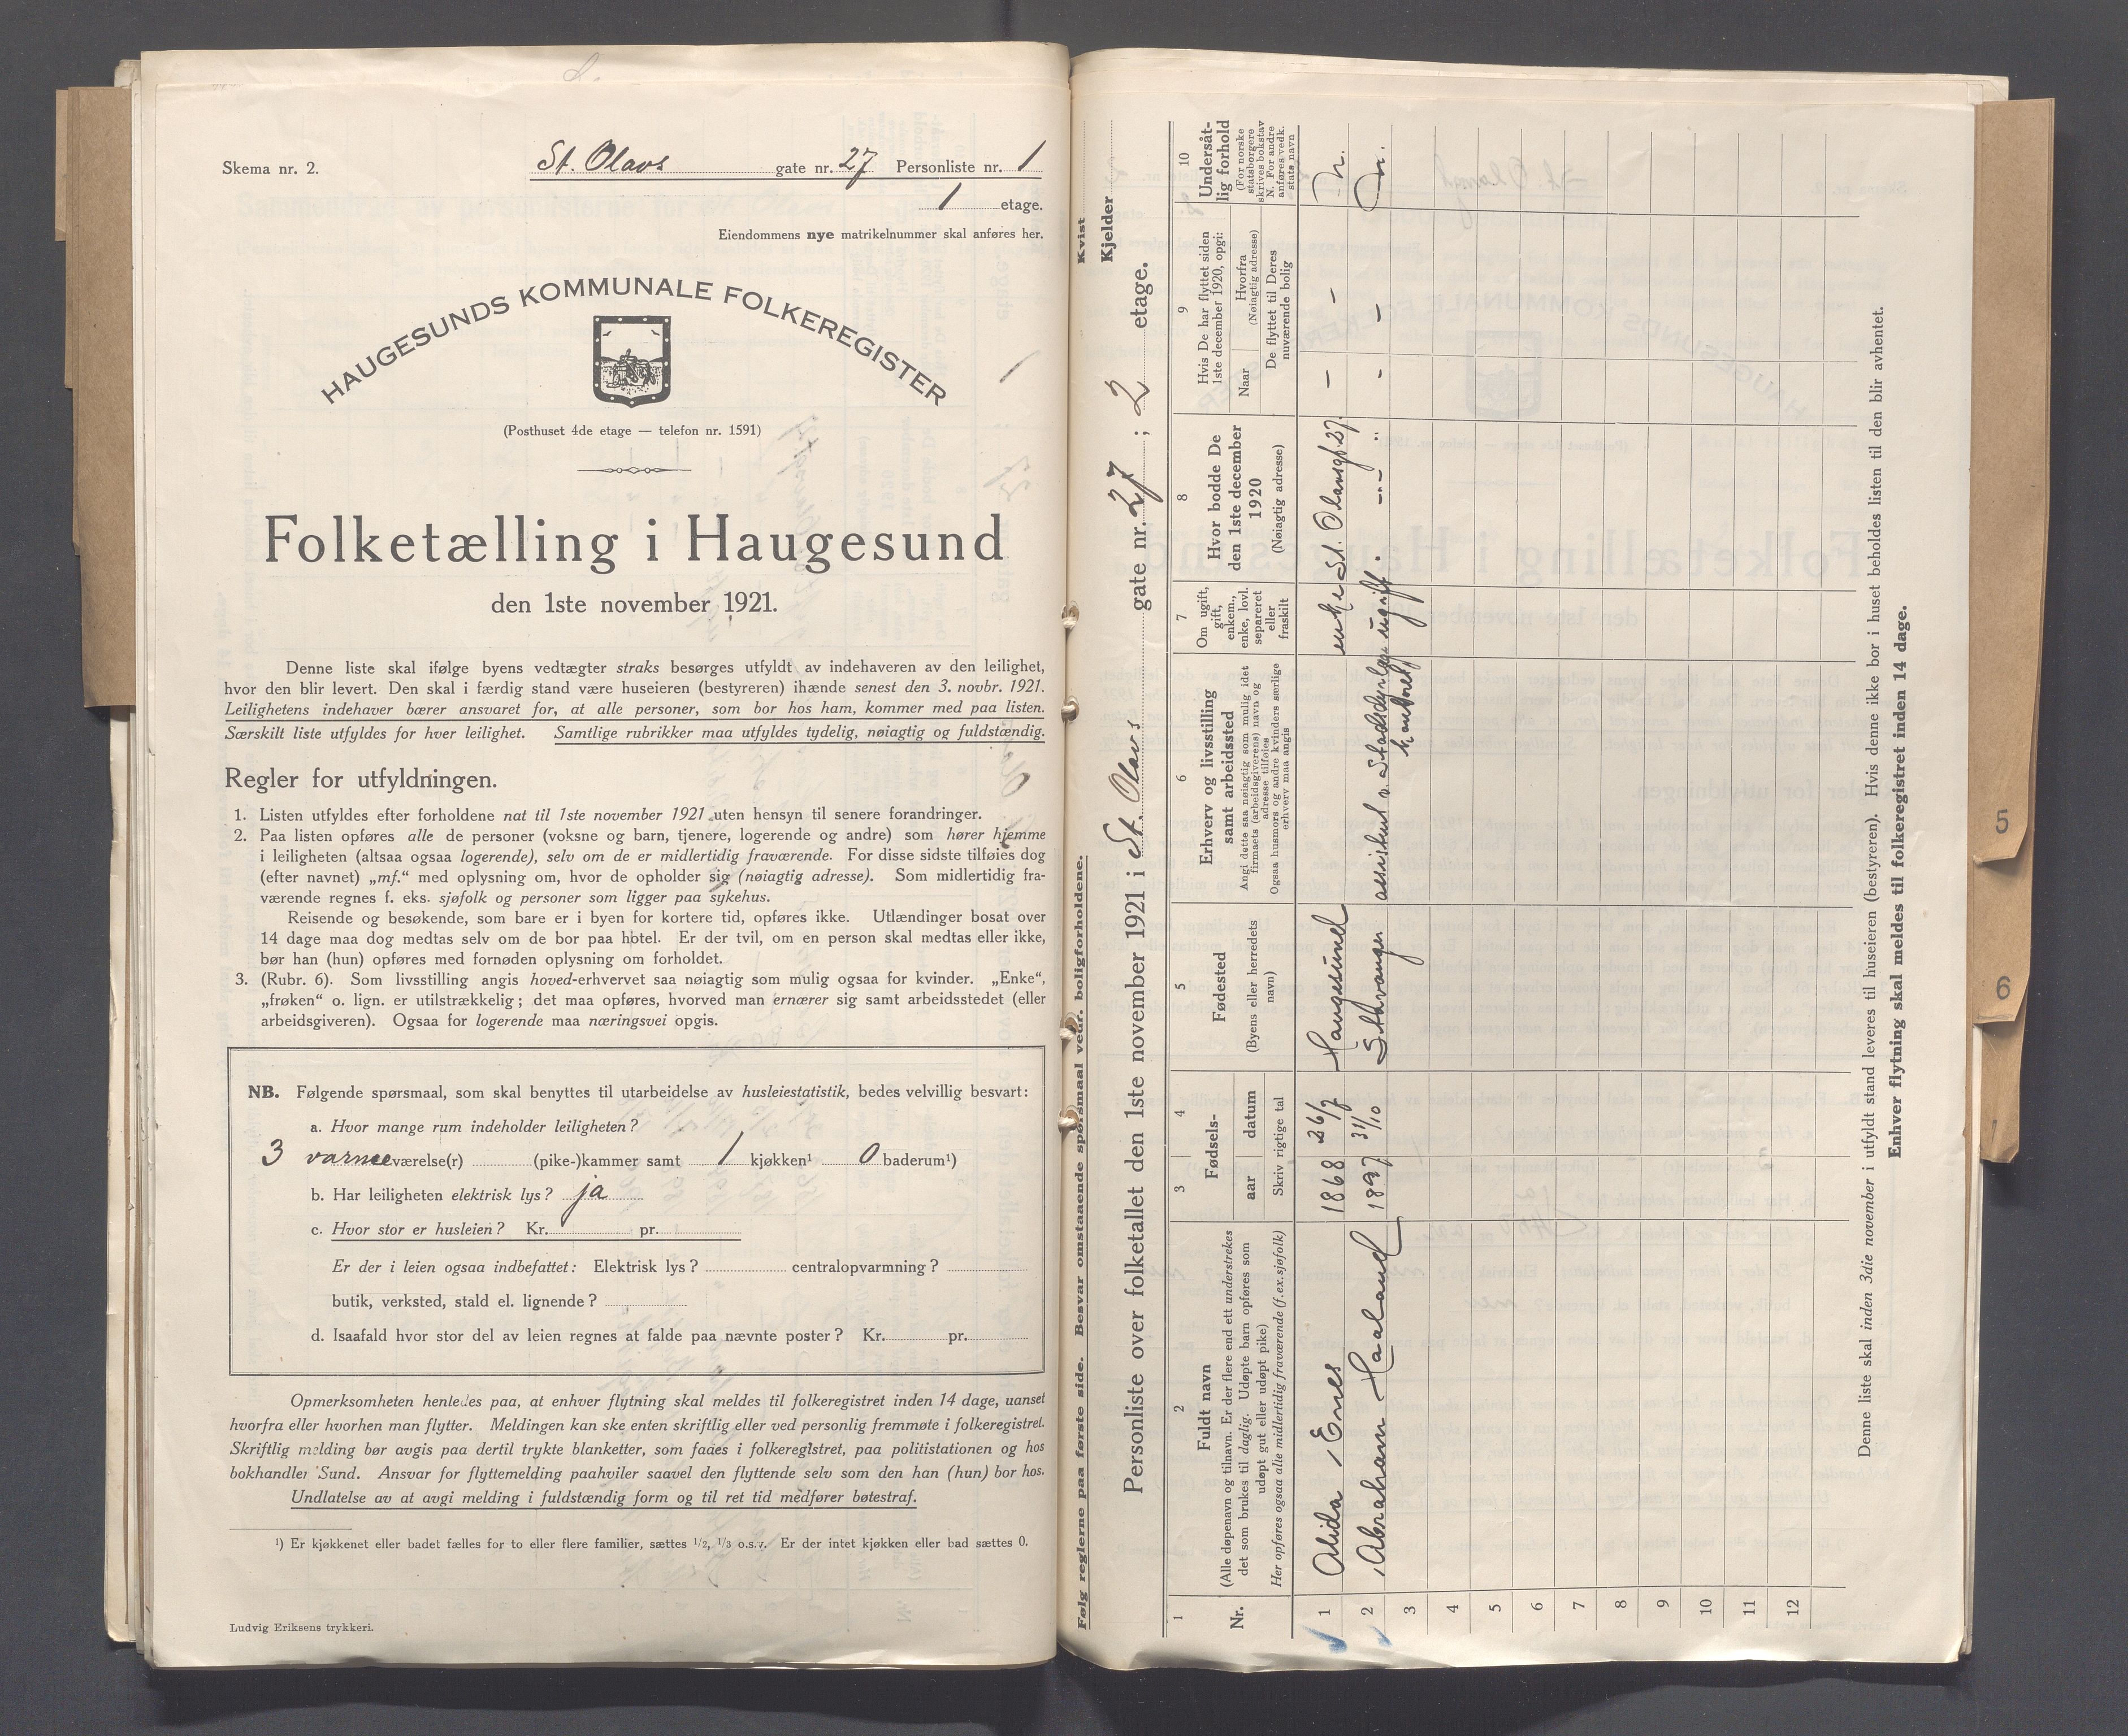 Skema nr. 2.
St. Olavs gate nr. 27 Personliste nr. 1
1 etage.
Eiendommens nye matrikelnummer skal anføres her.
HAUGESUNDS KOMMUNALE FOLKEREGISTER
(Posthuset 4de etage — telefon nr. 1591)
Folketælling i Haugesund
den 1ste november 1921.
Denne liste skal ifølge byens vedtægter straks besørges utfyldt av indehaveren av den leilighet,
hvor den blir levert. Den skal i færdig stand være huseieren (bestyreren) ihænde senest den 3. novbr. 1921.
Leilighetens indehaver bærer ansvaret for, at alle personer, som bor hos ham, kommer med paa listen.
Særskilt liste utfyldes for hver leilighet. Samtlige rubrikker maa utfyldes tydelig, nøiagtig og fuldstændig.
Regler for utfyldningen.
1. Listen utfyldes efter forholdene nat til 1ste november 1921 uten hensyn til senere forandringer.
2. Paa listen opføres alle de personer (voksne og barn, tjenere, logerende og andre) som hører hjemme
i leiligheten (altsaa ogsaa logerende), selv om de er midlertidig fraværende. For disse sidste tilføies dog
(efter navnet) „mf.“ med oplysning om, hvor de opholder sig (nøiagtig adresse). Som midlertidig fra-
værende regnes f. eks. sjøfolk og personer som ligger paa sykehus.
Reisende og besøkende, som bare er i byen for kortere tid, opføres ikke. Utlændinger bosat over
14 dage maa dog medtas selv om de bor paa hotel. Er der tvil, om en person skal medtas eller ikke,
bør han (hun) opføres med fornøden oplysning om forholdet.
3. (Rubr. 6). Som livsstilling angis hoved-erhvervet saa nøiagtig som mulig ogsaa for kvinder. „Enke“,
„frøken“ o. lign. er utilstrækkelig; det maa opføres, hvorved man ernærer sig samt arbeidsstedet (eller
arbeidsgiveren). Ogsaa for logerende maa næringsvei opgis.
NB. Følgende spørsmaal, som skal benyttes til utarbeidelse av husleiestatistik, bedes velvillig besvart:
a. Hvor mange rum indeholder leiligheten?
3 værelse(r) (pike-)kammer samt 1 kjøkken¹ 0 baderum¹)
b. Har leiligheten elektrisk lys? ja
c. Hvor stor er husleien? Kr. pr.
Er der i leien ogsaa indbefattet: Elektrisk lys? centralopvarmning?
butik, verksted, stald el. lignende?
d. Isaafald hvor stor del av leien regnes at falde paa nævnte poster? Kr. pr.
Opmerksomheten henledes paa, at enhver flytning skal meldes til folkeregistret inden 14 dage, uanset
hvorfra eller hvorhen man flytter. Meldingen kan ske enten skriftlig eller ved personlig fremmøte i folkeregistret.
Skriftlig melding bør avgis paa dertil trykte blanketter, som faaes i folkeregistret, paa politistationen og hos
bokhandler Sund. Ansvar for flyttemelding paahviler saavel den flyttende selv som den han (hun) bor hos.
Undlatelse av at avgi melding i fuldstændig form og til ret tid medfører bøtestraf.
¹) Er kjøkkenet eller badet fælles for to eller flere familier, sættes 1/2, 1/3 o.s.v. Er der intet kjøkken eller bad sættes 0.
Ludvig Eriksens trykkeri.
Følg reglerne paa første side. Besvar omstaaende spørsmaal vedr. boligforholdene.
Kvist
Kjelder
Personliste over folketallet den 1ste november 1921 i St. Olavs gate nr. 27; 2 etage.
1 Nr.
2 Fuldt navn
(Alle døpenavn og tilnavn. Er der flere end ett understrekes
det som brukes til daglig. Udøpte barn opføres som
udøpt gut eller udøpt pike)
Her opføres ogsaa alle midlertidig fraværende (f.ex.sjøfolk)
3 4 Fødsels-
aar datum
Skriv rigtige tal
5 Fødested
(Byens eller herredets
navn)
6 Erhverv og livsstilling
samt arbeidssted
Angi dette saa nøiagtig som mulig idet
firmaets (arbeidsgiverens) navn og
adresse tilføies
Ogsaa husmors og andre kvinders særlige
erhverv maa angis
7 Om ugift,
gift,
enkem.,
enke, lovl.
separeret
eller
fraskilt
8 Hvor bodde De
den 1ste december
1920
(Nøiagtig adresse)
9 Hvis De har flyttet siden
1ste december 1920, opgi:
Naar Hvorfra
(Nøiagtig adresse)
De flyttet til Deres
nuværende bolig
10 Undersåt-
lig forhold
(For norske
statsborgere
skrives bokstav
N. For andre
anføres vedk.
stats navn
1 Alida Enes 1868 26/7 Haugesund enke St. Olavsgt 27. – – n.
2 Abraham Haaland 1897 31/10 assistent v. ugift – – n.
3
4
5
6
7
8
9
10
11
12
Denne liste skal inden 3die november i utfyldt stand leveres til huseieren (bestyreren). Hvis denne ikke bor i huset beholdes listen til den blir avhentet.
Enhver flytning skal meldes til folkeregistret inden 14 dage.
5
6